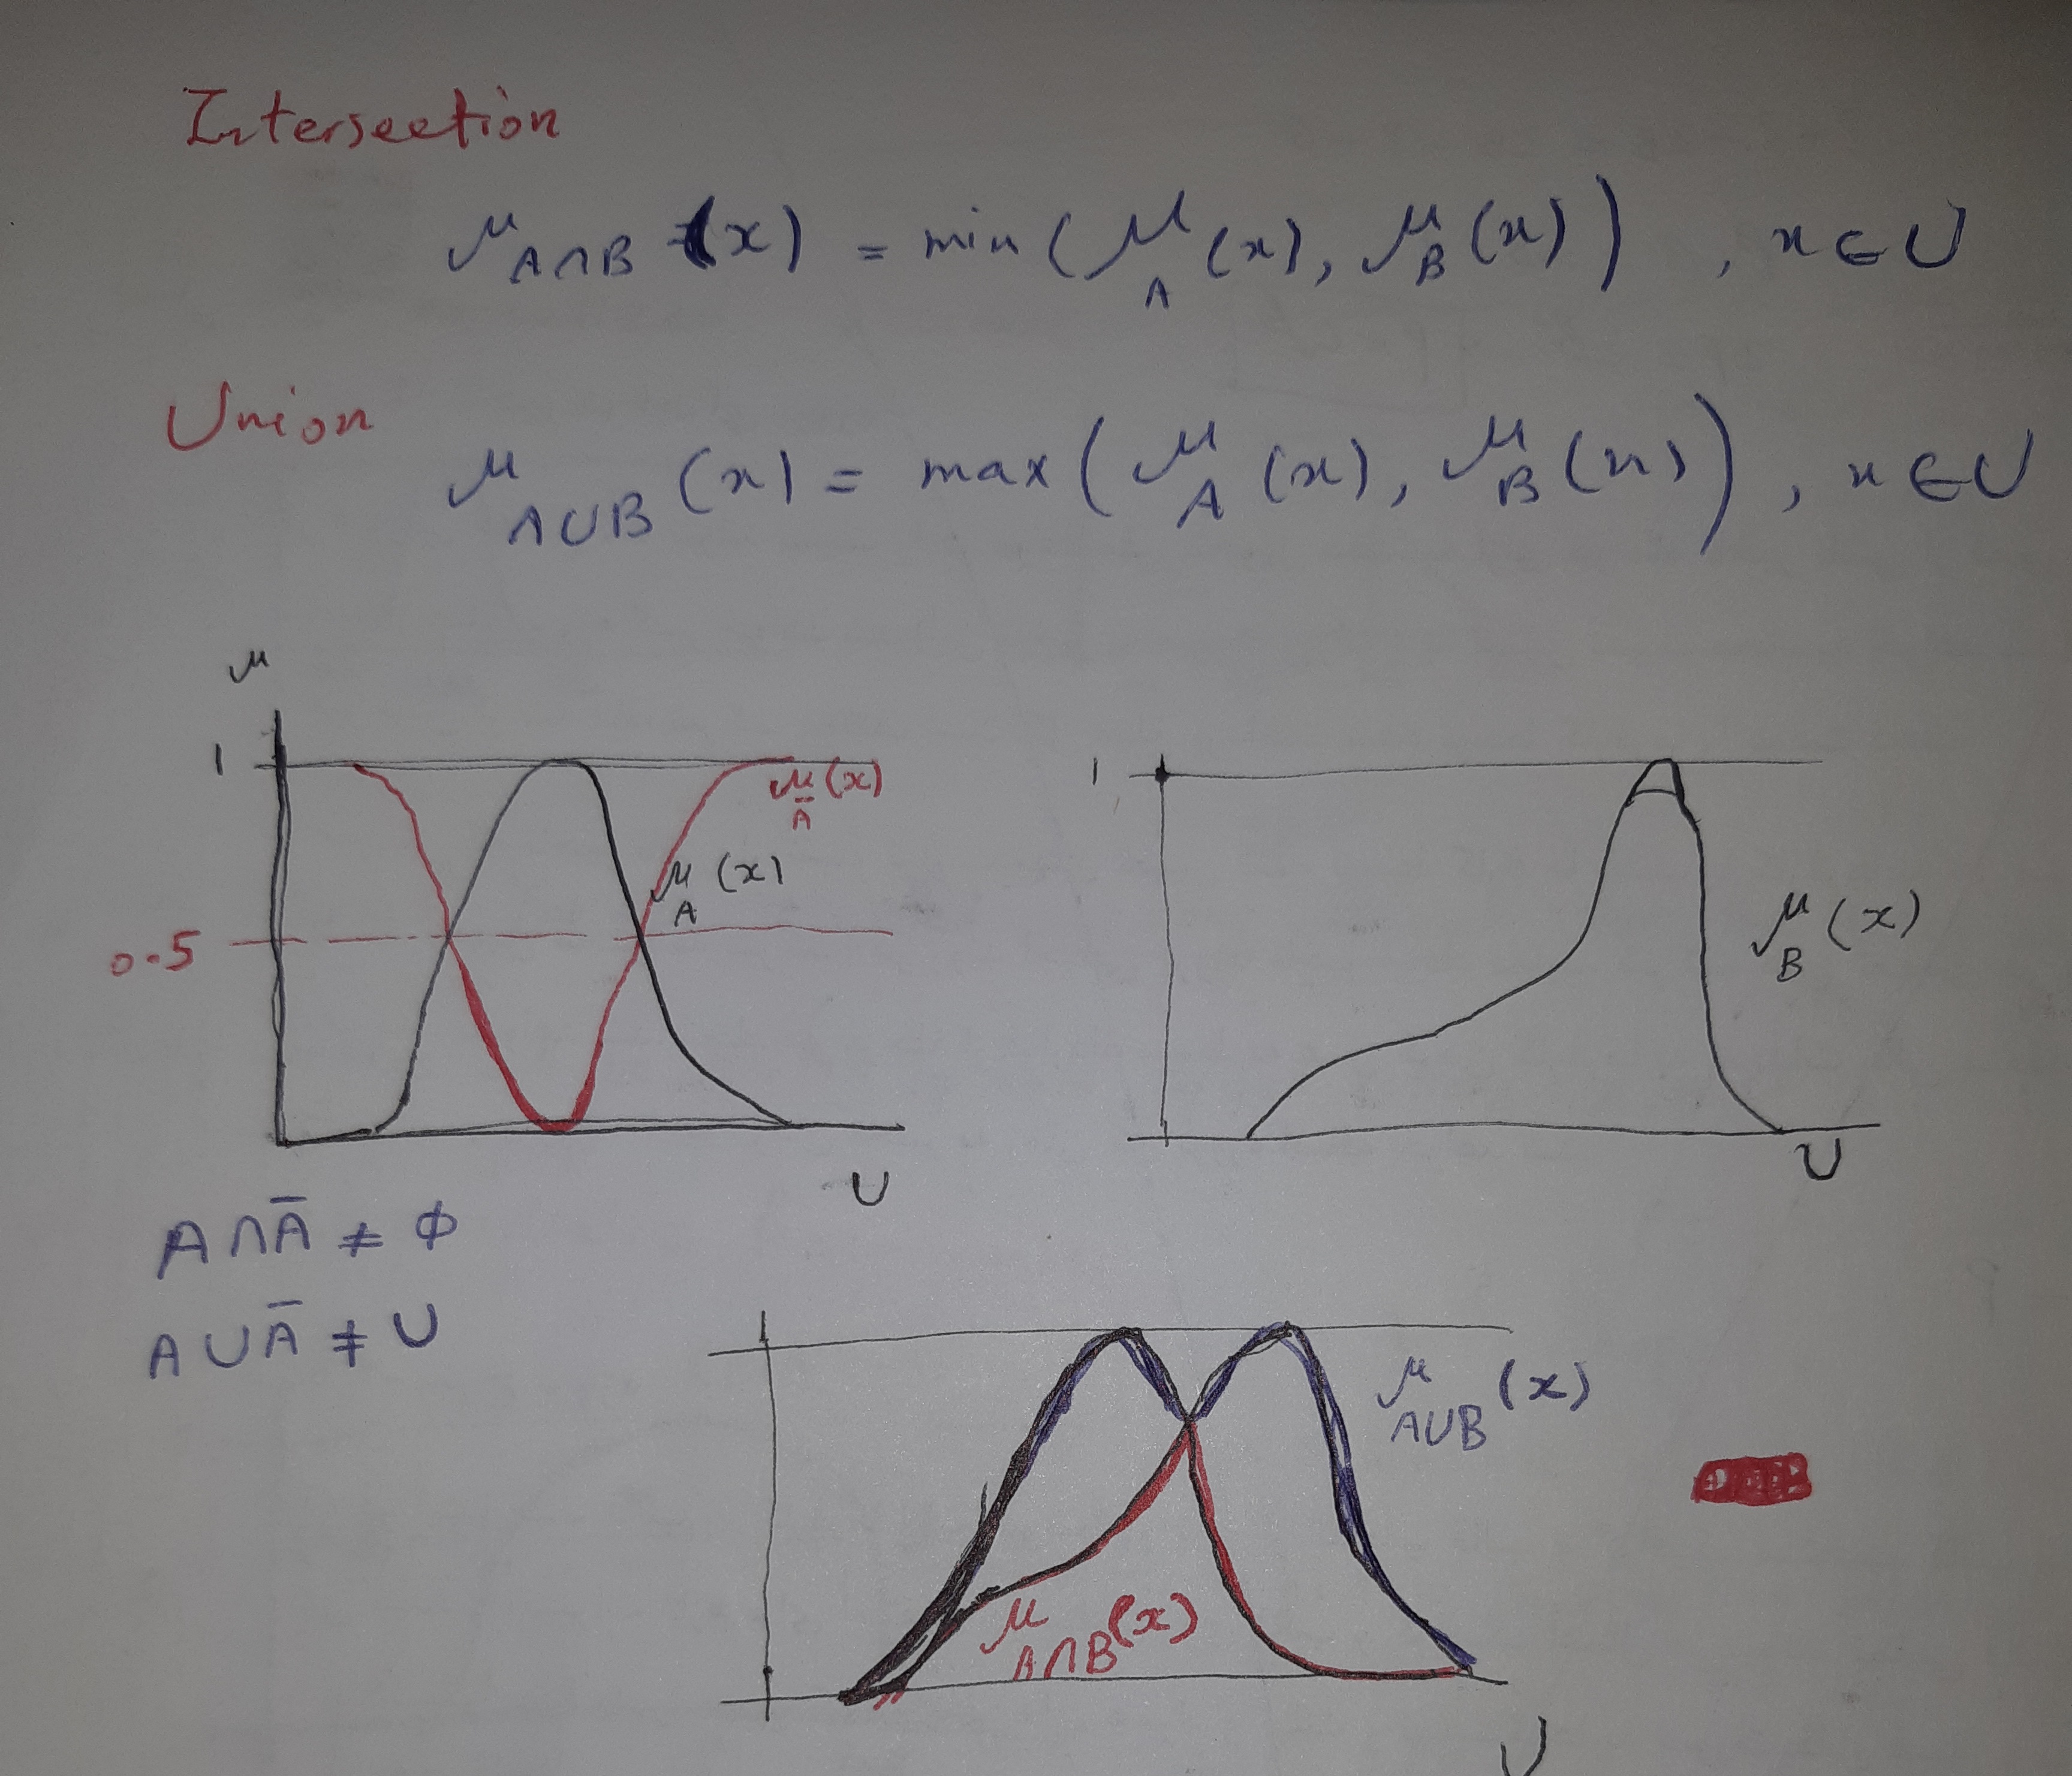 Intersection
μ A∩B (x) = min ( μ A (x), μ B (x) ) , x ∈ U
Union
μ A∪B (x) = max ( μ A (x), μ B (x) ) , x ∈ U
μ
1
μ Ā (x)
μ A (x)
0.5
U
1
μ B (x)
U
A ∩ Ā ≠ ϕ
A ∪ Ā ≠ U
1
μ A∪B (x)
μ A∩B (x)
U